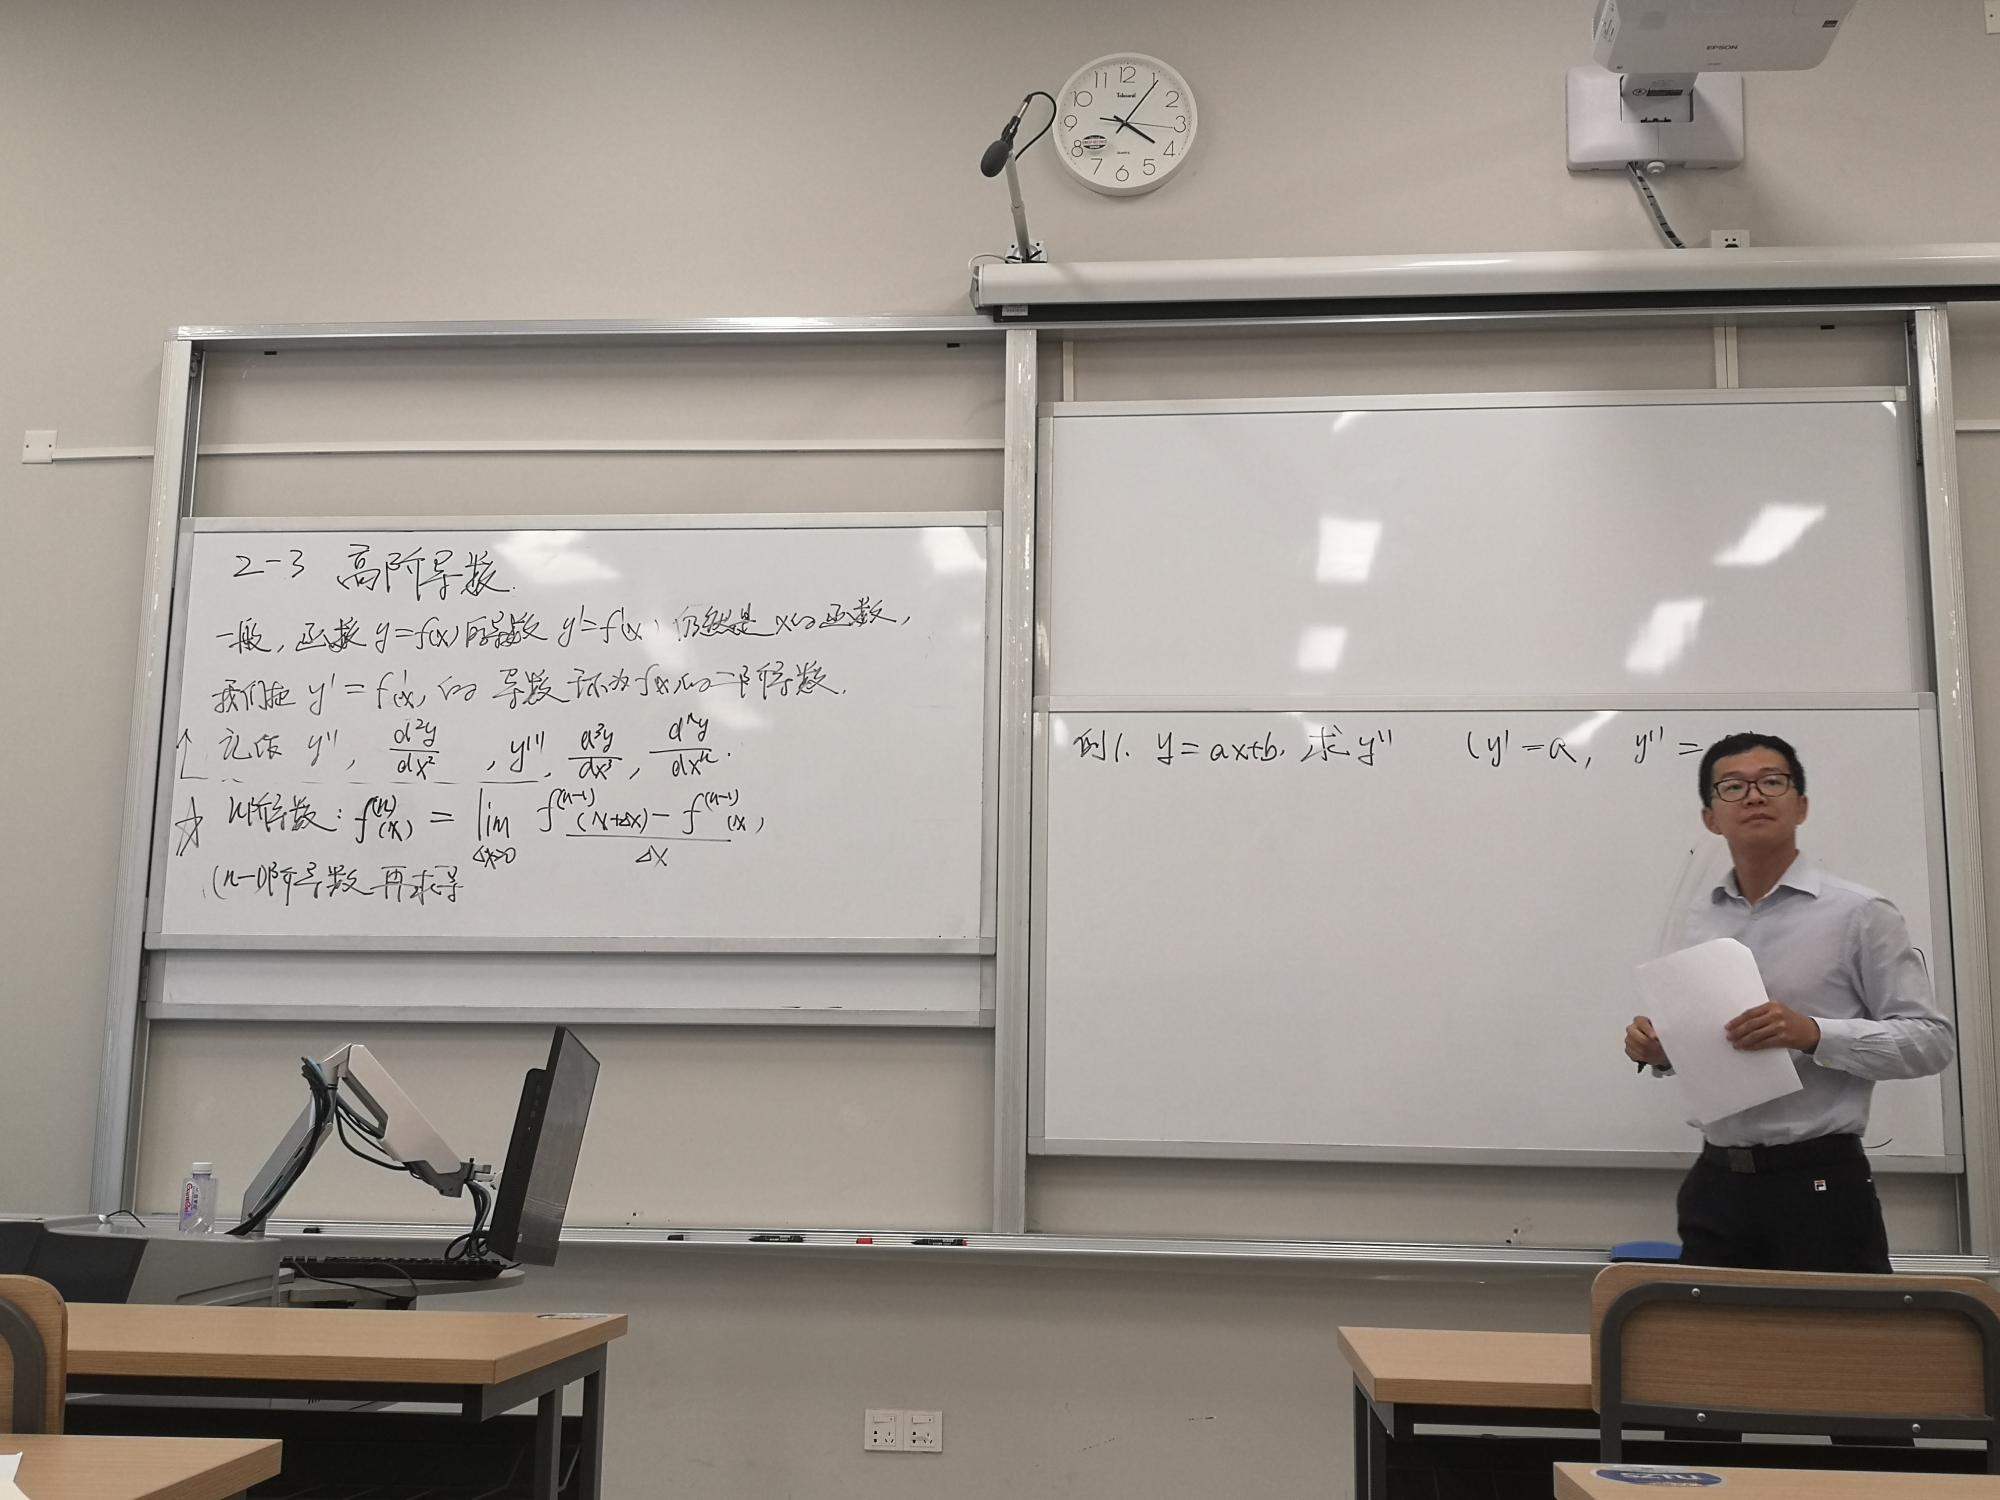 EPSON
11 12 1
10 2
9 3
8 4
7 6 5
QUARTZ
2-3 高阶导数.
一般, 函数 y=f(x) 的导数 y'=f'(x) 仍然是 x的函数,
我们把 y'=f'(x) 的 导数 称为 f(x)的二阶导数.
记作 y'', d²y/dx², y''', d³y/dx³, dⁿy/dxⁿ.
n阶导数: f⁽ⁿ⁾(x) = lim Δx→0 f⁽ⁿ⁻¹⁾(x+Δx) − f⁽ⁿ⁻¹⁾(x) / Δx
(n-1)阶导数再求导
例1. y=ax+b. 求 y'' (y'=a, y''=
SZTU